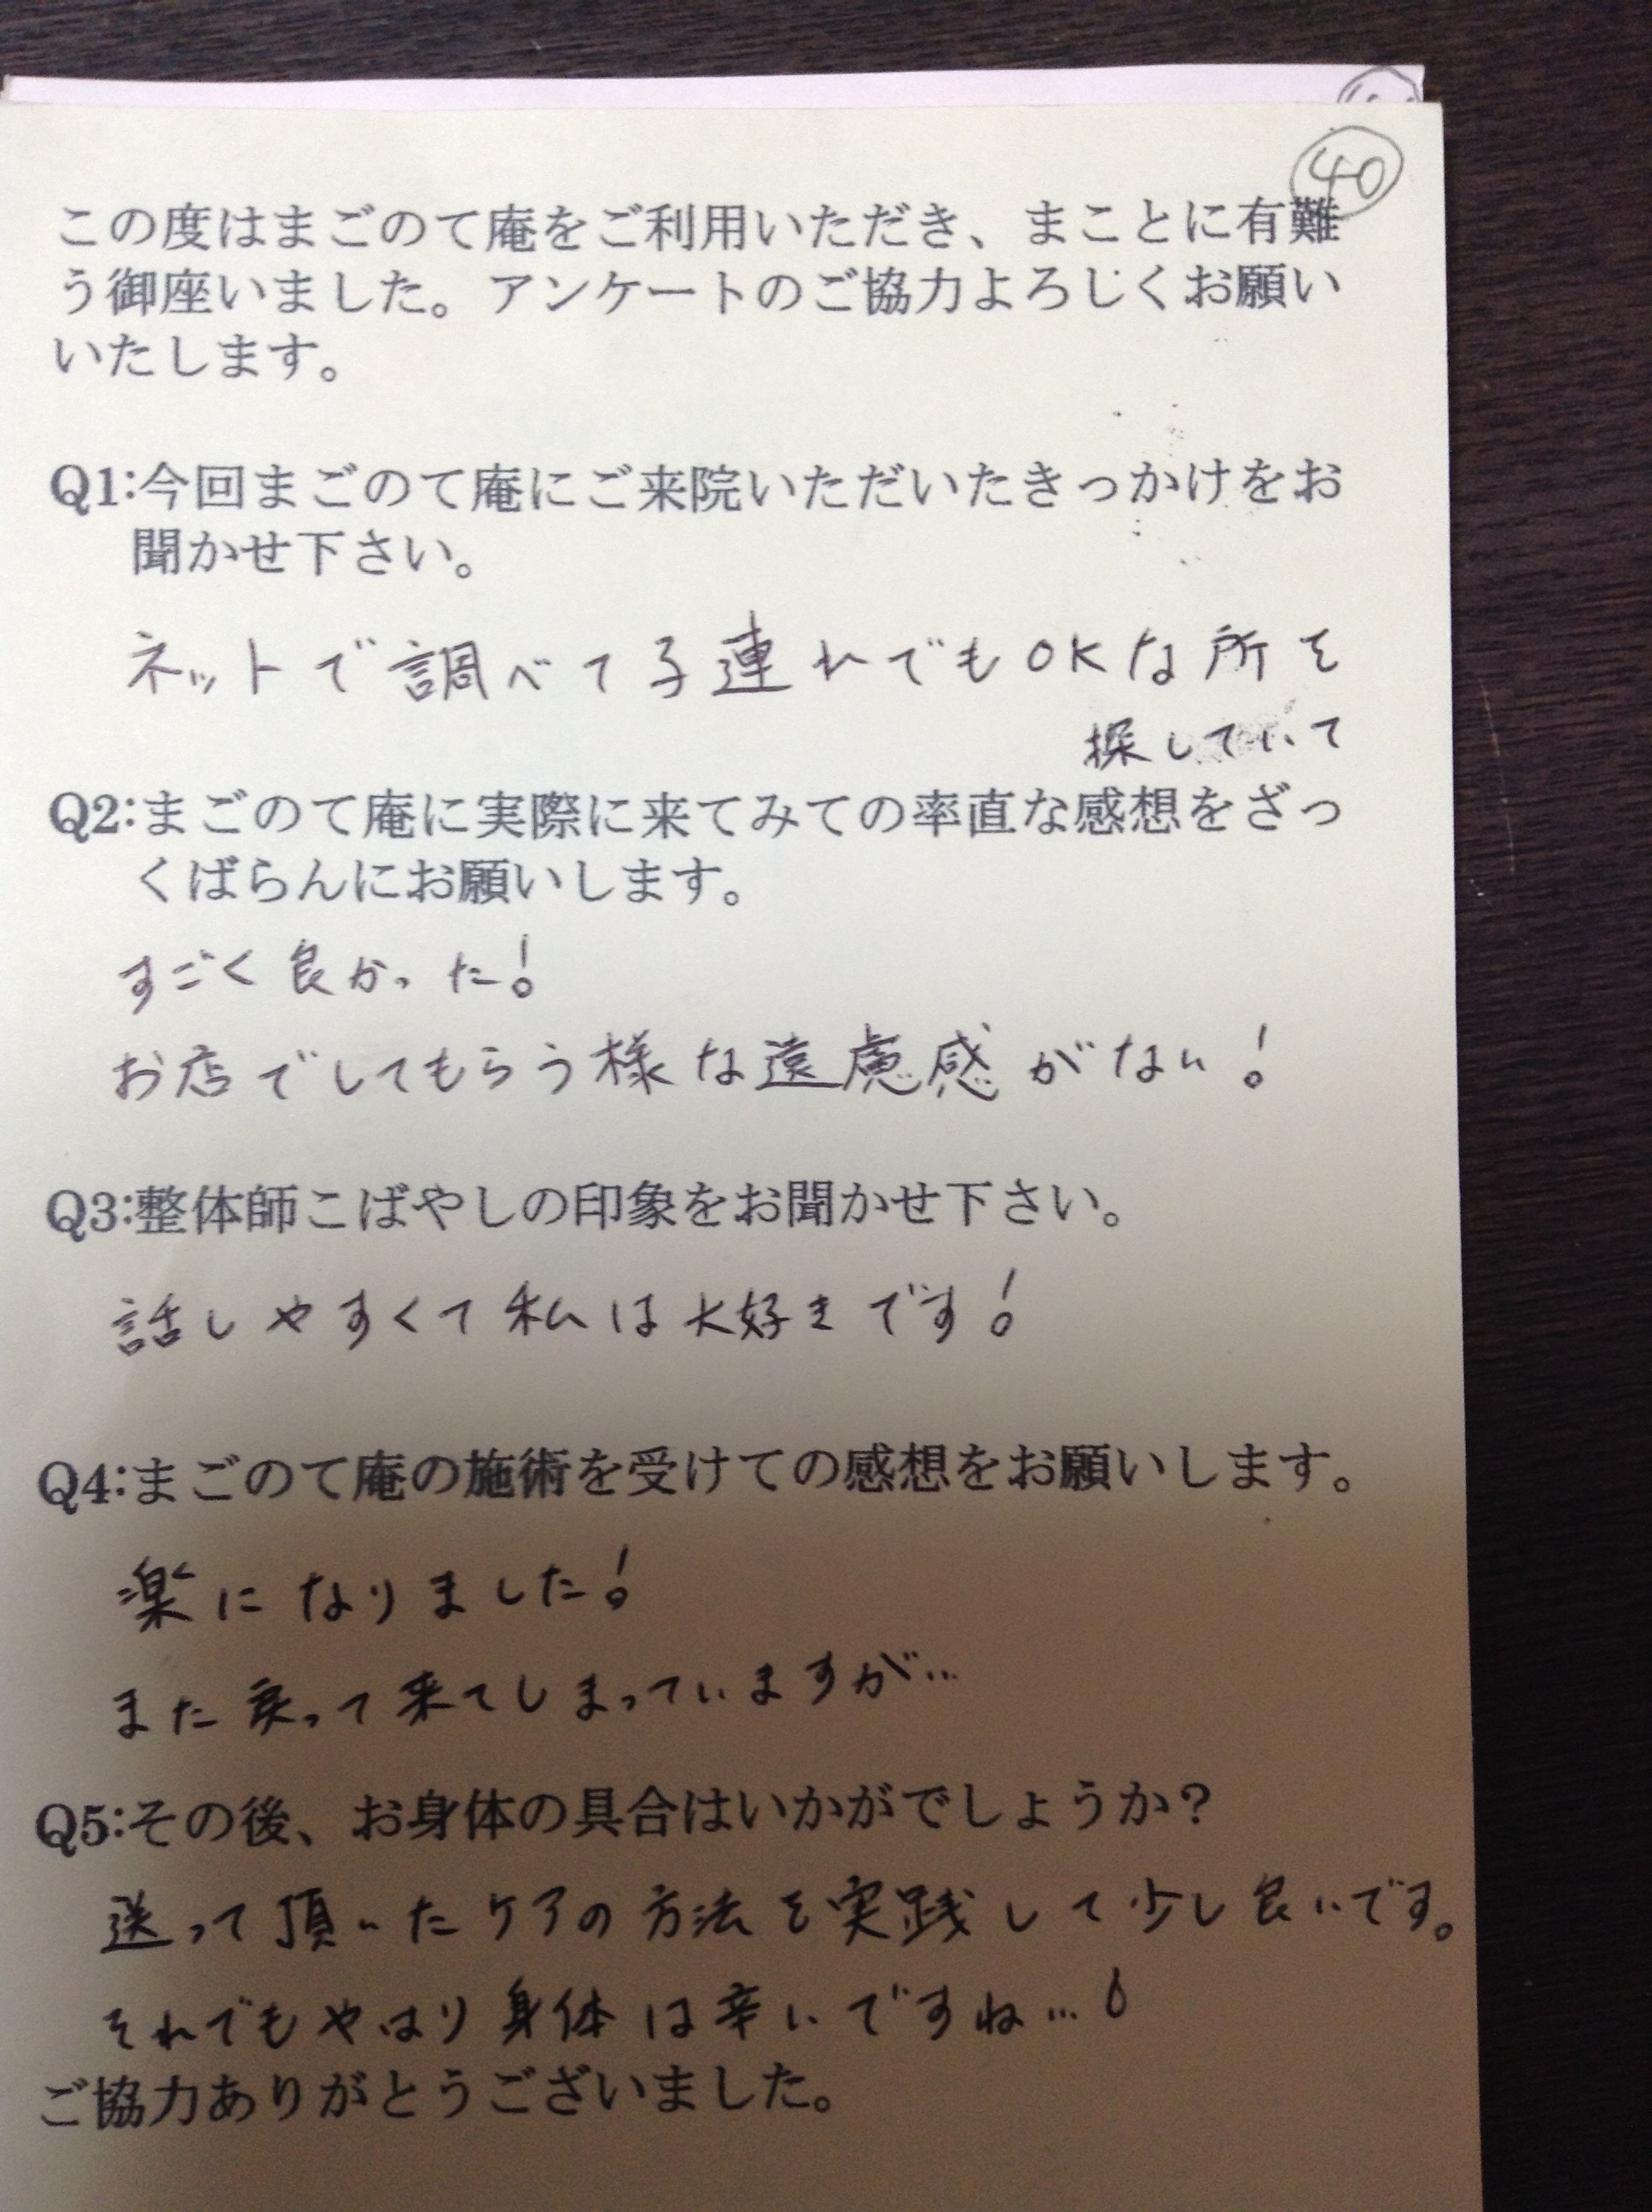 40
この度はまごのて庵をご利用いただき、まことに有難
う御座いました。アンケートのご協力よろしくお願い
いたします。
Q1:今回まごのて庵にご来院いただいたきっかけをお
聞かせ下さい。
ネットで調べて子連れでもOKな所を
探していて
Q2:まごのて庵に実際に来てみての率直な感想をざっ
くばらんにお願いします。
すごく良かった!
お店でしてもらう様な遠慮感がない!
Q3:整体師こばやしの印象をお聞かせ下さい。
話しやすくて私は大好きです!
Q4:まごのて庵の施術を受けての感想をお願いします。
楽になりました!
また戻って来てしまっていますが…
Q5:その後、お身体の具合はいかがでしょうか?
送って頂いたケアの方法を実践して少し良いです。
それでもやはり身体は辛いですね…
ご協力ありがとうございました。